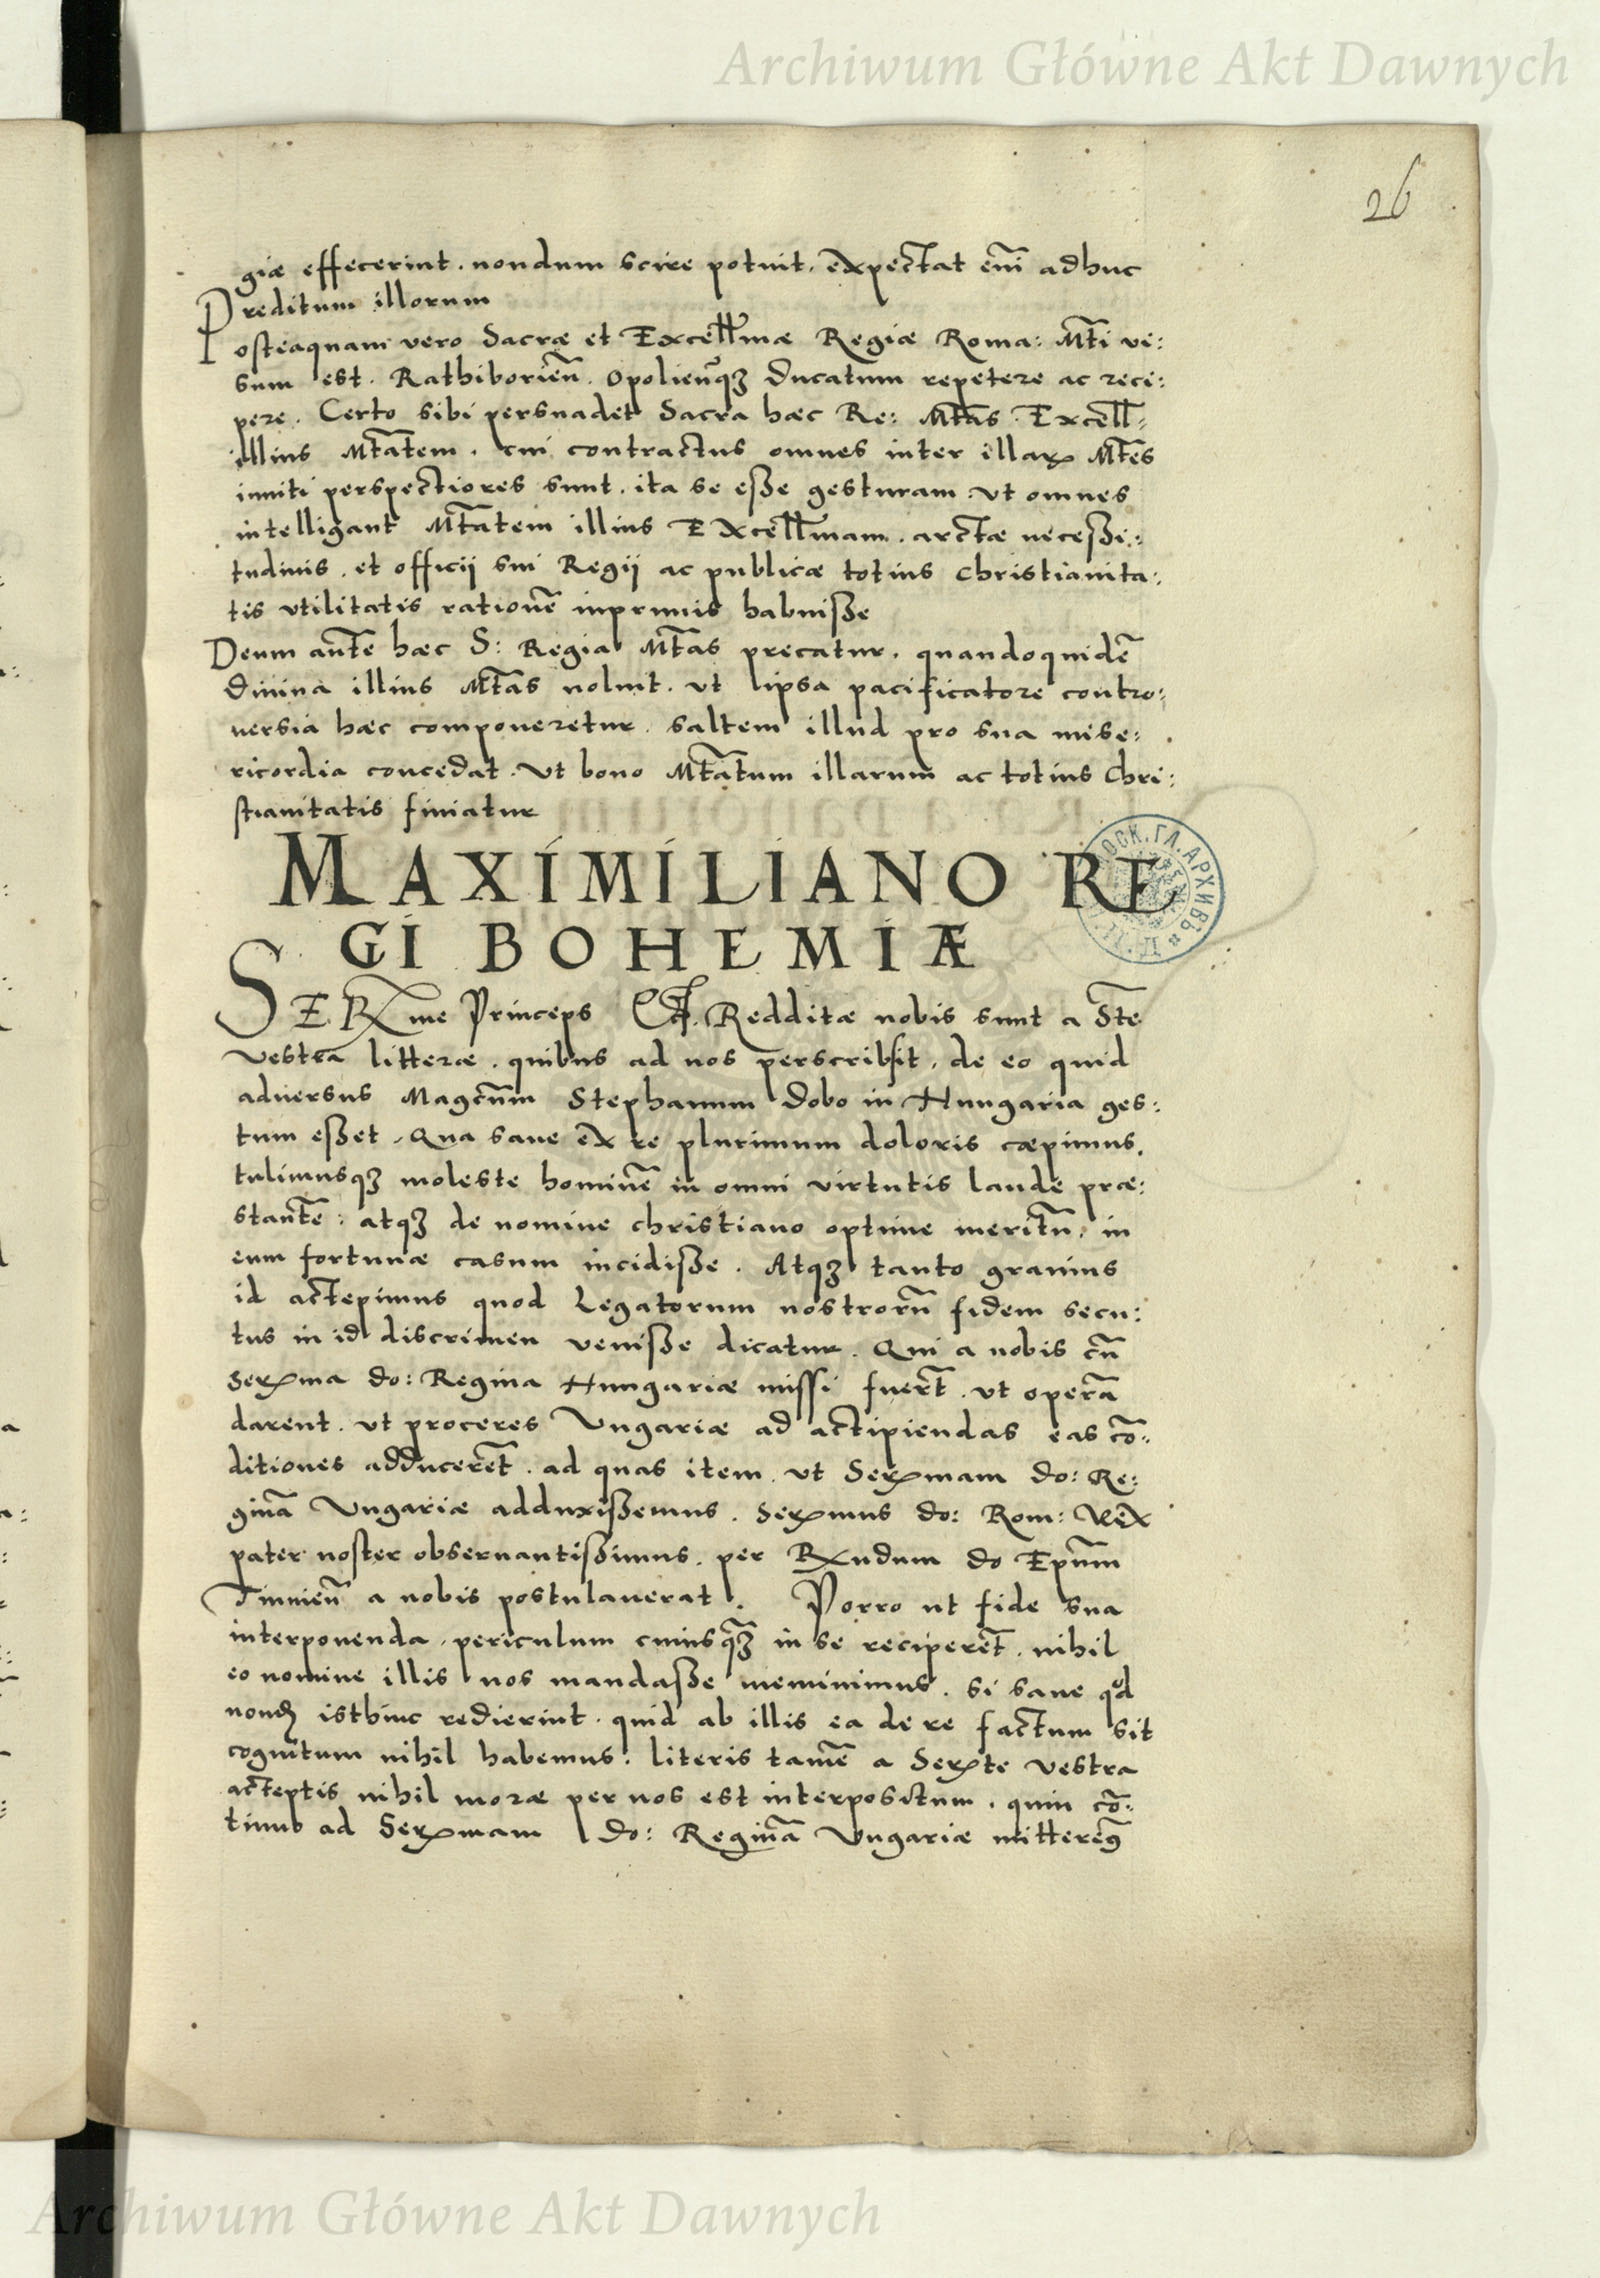 Archiwum Główne Akt Dawnych
26
giæ effecerint. nondum scire potuit. expectat em̄ adhuc
reditum illorum
Posteaquam vero Sacræ et Excell̄mæ Regiæ Roma: Mt̄i vi:
sum est. Rathiborien̄. Opolien̄q3 Ducatum repetere ac reci:
pere. Certo sibi persuadet Sacra hæc Re: Mt̄as. Excell̄:
illius Mt̄atem. cui contractus omnes inter illarꝝ Mt̄es
initi perspectiores sunt. ita se eße gesturam. ut omnes
intelligant Mt̄atem illius Excell̄mam. arctæ neceßi:
tudinis. et officij sui Regij ac publicæ totius Christianita:
tis utilitatis rationē inprimis habuiße
Deum aut̄e hæc S: Regia Mt̄as precatur. quandoquidē
Divina illius Mt̄as noluit. ut ipsa pacificatore contro:
versia hæc componeretur. saltem illud pro sua mise:
ricordia concedat. Ut bono Mt̄atum illarum ac totius Chri:
stianitatis finiatur
MAXIMILIANO RE
GI BOHEMIÆ
SERꝝme Princeps Redditæ nobis sunt a St̄e
Vestra litteræ. quibus ad nos perscribsit. de eo quid
adversus Magcūm Stephanum Dobo in Hungaria ges:
tum eßet. Qua sane ex re plurimum doloris cæpimus.
tulimusq3 moleste hominē in omni virtutis laude præ:
stantē: atq3 de nomine christiano optime meritū. in
eum fortunæ casum incidiße. Atq3 tanto gravius
id accepimus quod Legatorum nostrorū fidem secu:
tus in id discrimen veniße dicatur. Qui a nobis cū
Serꝝma do: Regina Hungariæ missi fuert̄. ut operā
darent. ut proceres Ungariæ ad accipiendas eas cō:
ditiones adducerēt. ad quas item. ut Serꝝmam do: Re:
ginā Ungariæ adduxißemus. Serꝝmus do: Rom: Rex
pater noster observantißimus. per Rꝝndum do Epūm
Tinnien̄ a nobis postulaverat. Porro ut fide sua
interponenda. periculum cuiusq3 in se reciperēt. nihil
eo nomine illis nos mandaße meminimus. si sane qd
nond istinc redierint. quid ab illis ea de re factum sit
cognitum nihil habemus. literis tamē a Serꝝte Vestra
acceptis nihil moræ per nos est interpositum. quin cō:
tinuo ad Serꝝmam do: Reginā Ungariæ mitterem9
Archiwum Główne Akt Dawnych